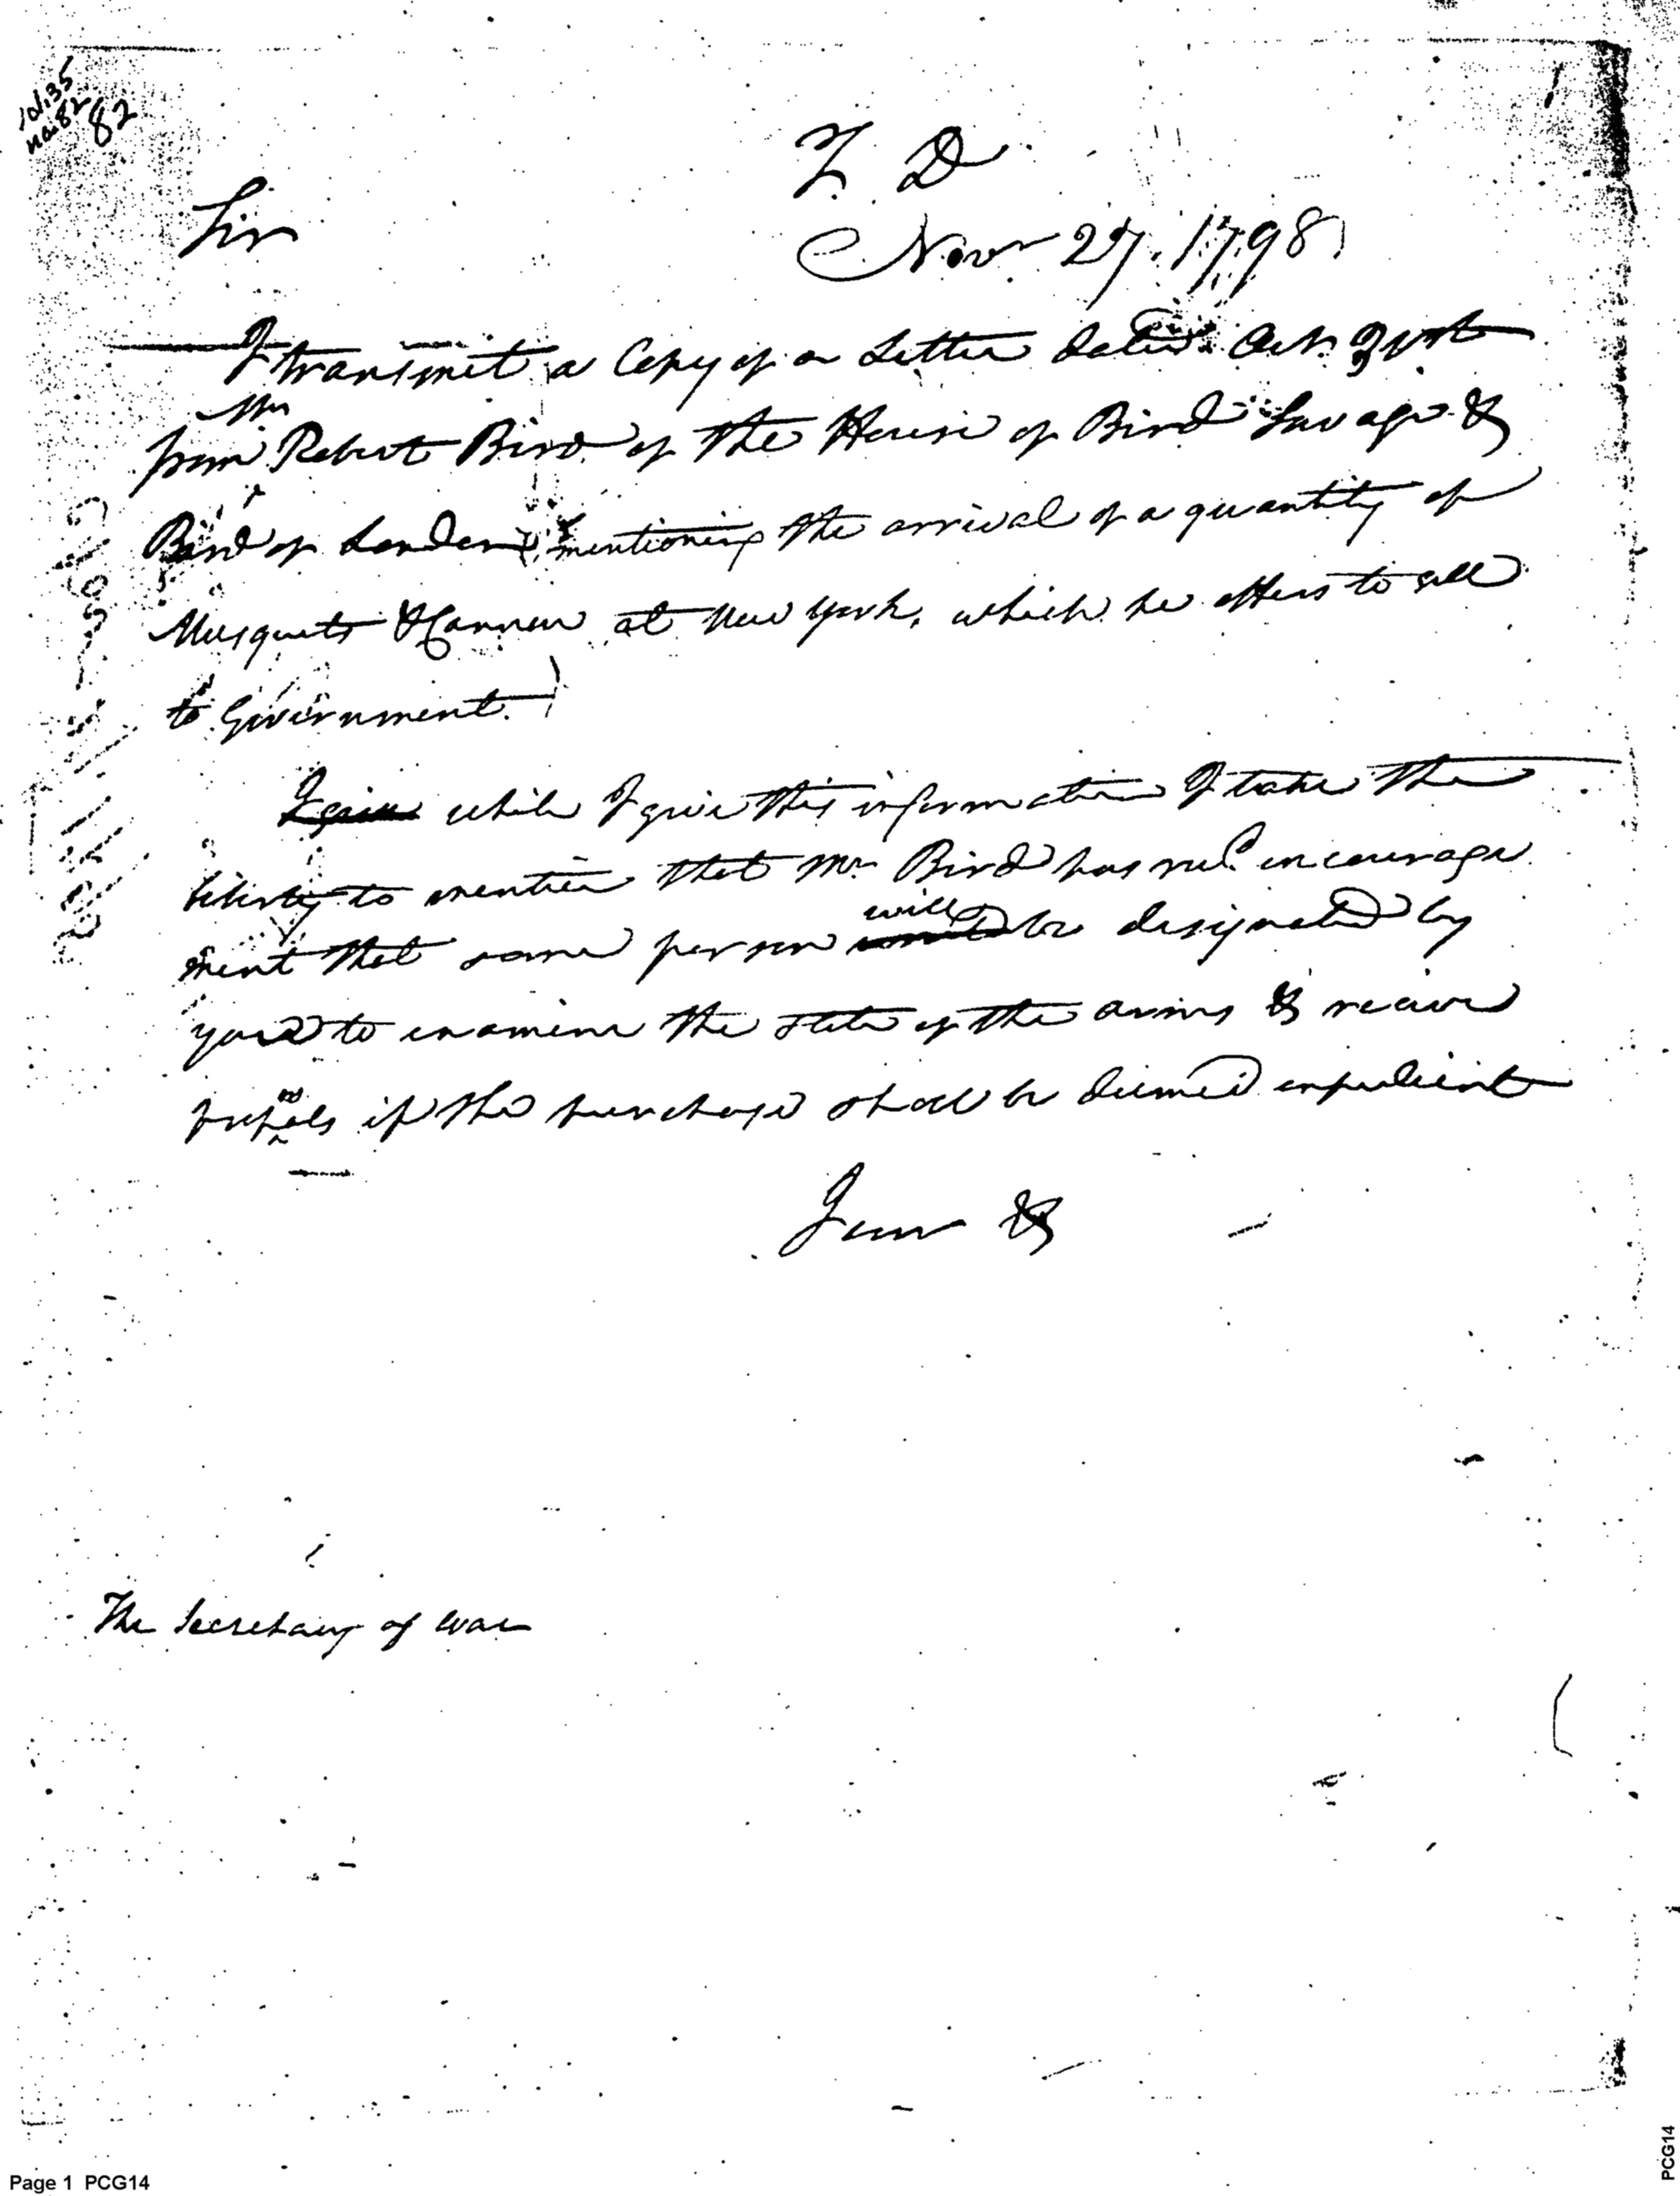 vol 35
no. 82
82
T. D
Sir
Nov 27. 1798
I transmit a Copy of a Letter dated Oct 31st
Mr
from Robert Bird of the House of Bird Savage &
Bird of London, mentioning the arrival of a quantity of
Musquets & Cannon at New York, which he offers to sell
to Government.
I give while I give this information I take the
liberty to mention that Mr Bird has recd encourage
will
ment that some person would be designated by
you to examine the state of the arms & receive
propos
als if the purchase shall be deemed expedient
I am &
The Secretary of War
Page 1 PCG14
PCG14